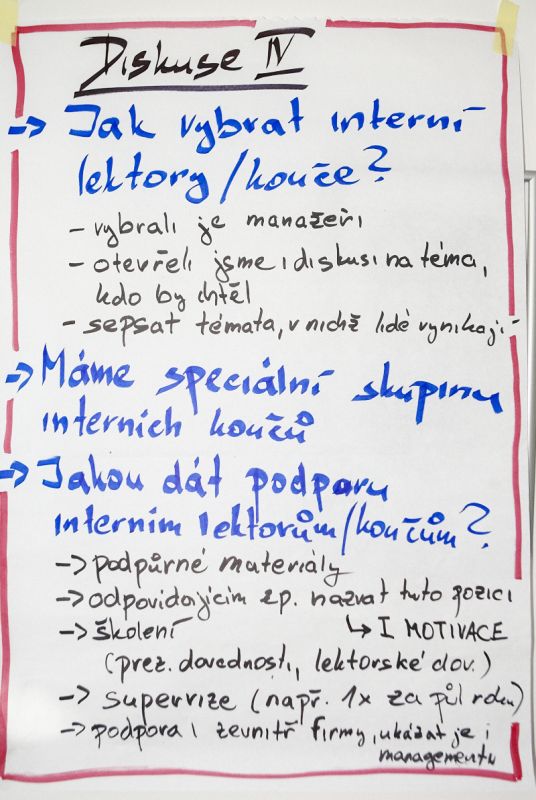 Diskuse IV
→ Jak vybrat interní
lektory/kouče?
- vybrali je manažeři
- otevřeli jsme i diskusi na téma,
kdo by chtěl
- sepsat témata, v nichž lidé vynikají
→ Máme speciální skupinu
interních koučů
→ Jakou dát podporu
interním lektorům/koučům?
→ podpůrné materiály
→ odpovídajícím zp. nazvat tuto pozici
→ školení ↳ I MOTIVACE
(prez. dovednosti, lektorské dov.)
→ supervize (např. 1x za půl roku)
→ podpora i zevnitř firmy, ukázat je i
managementu